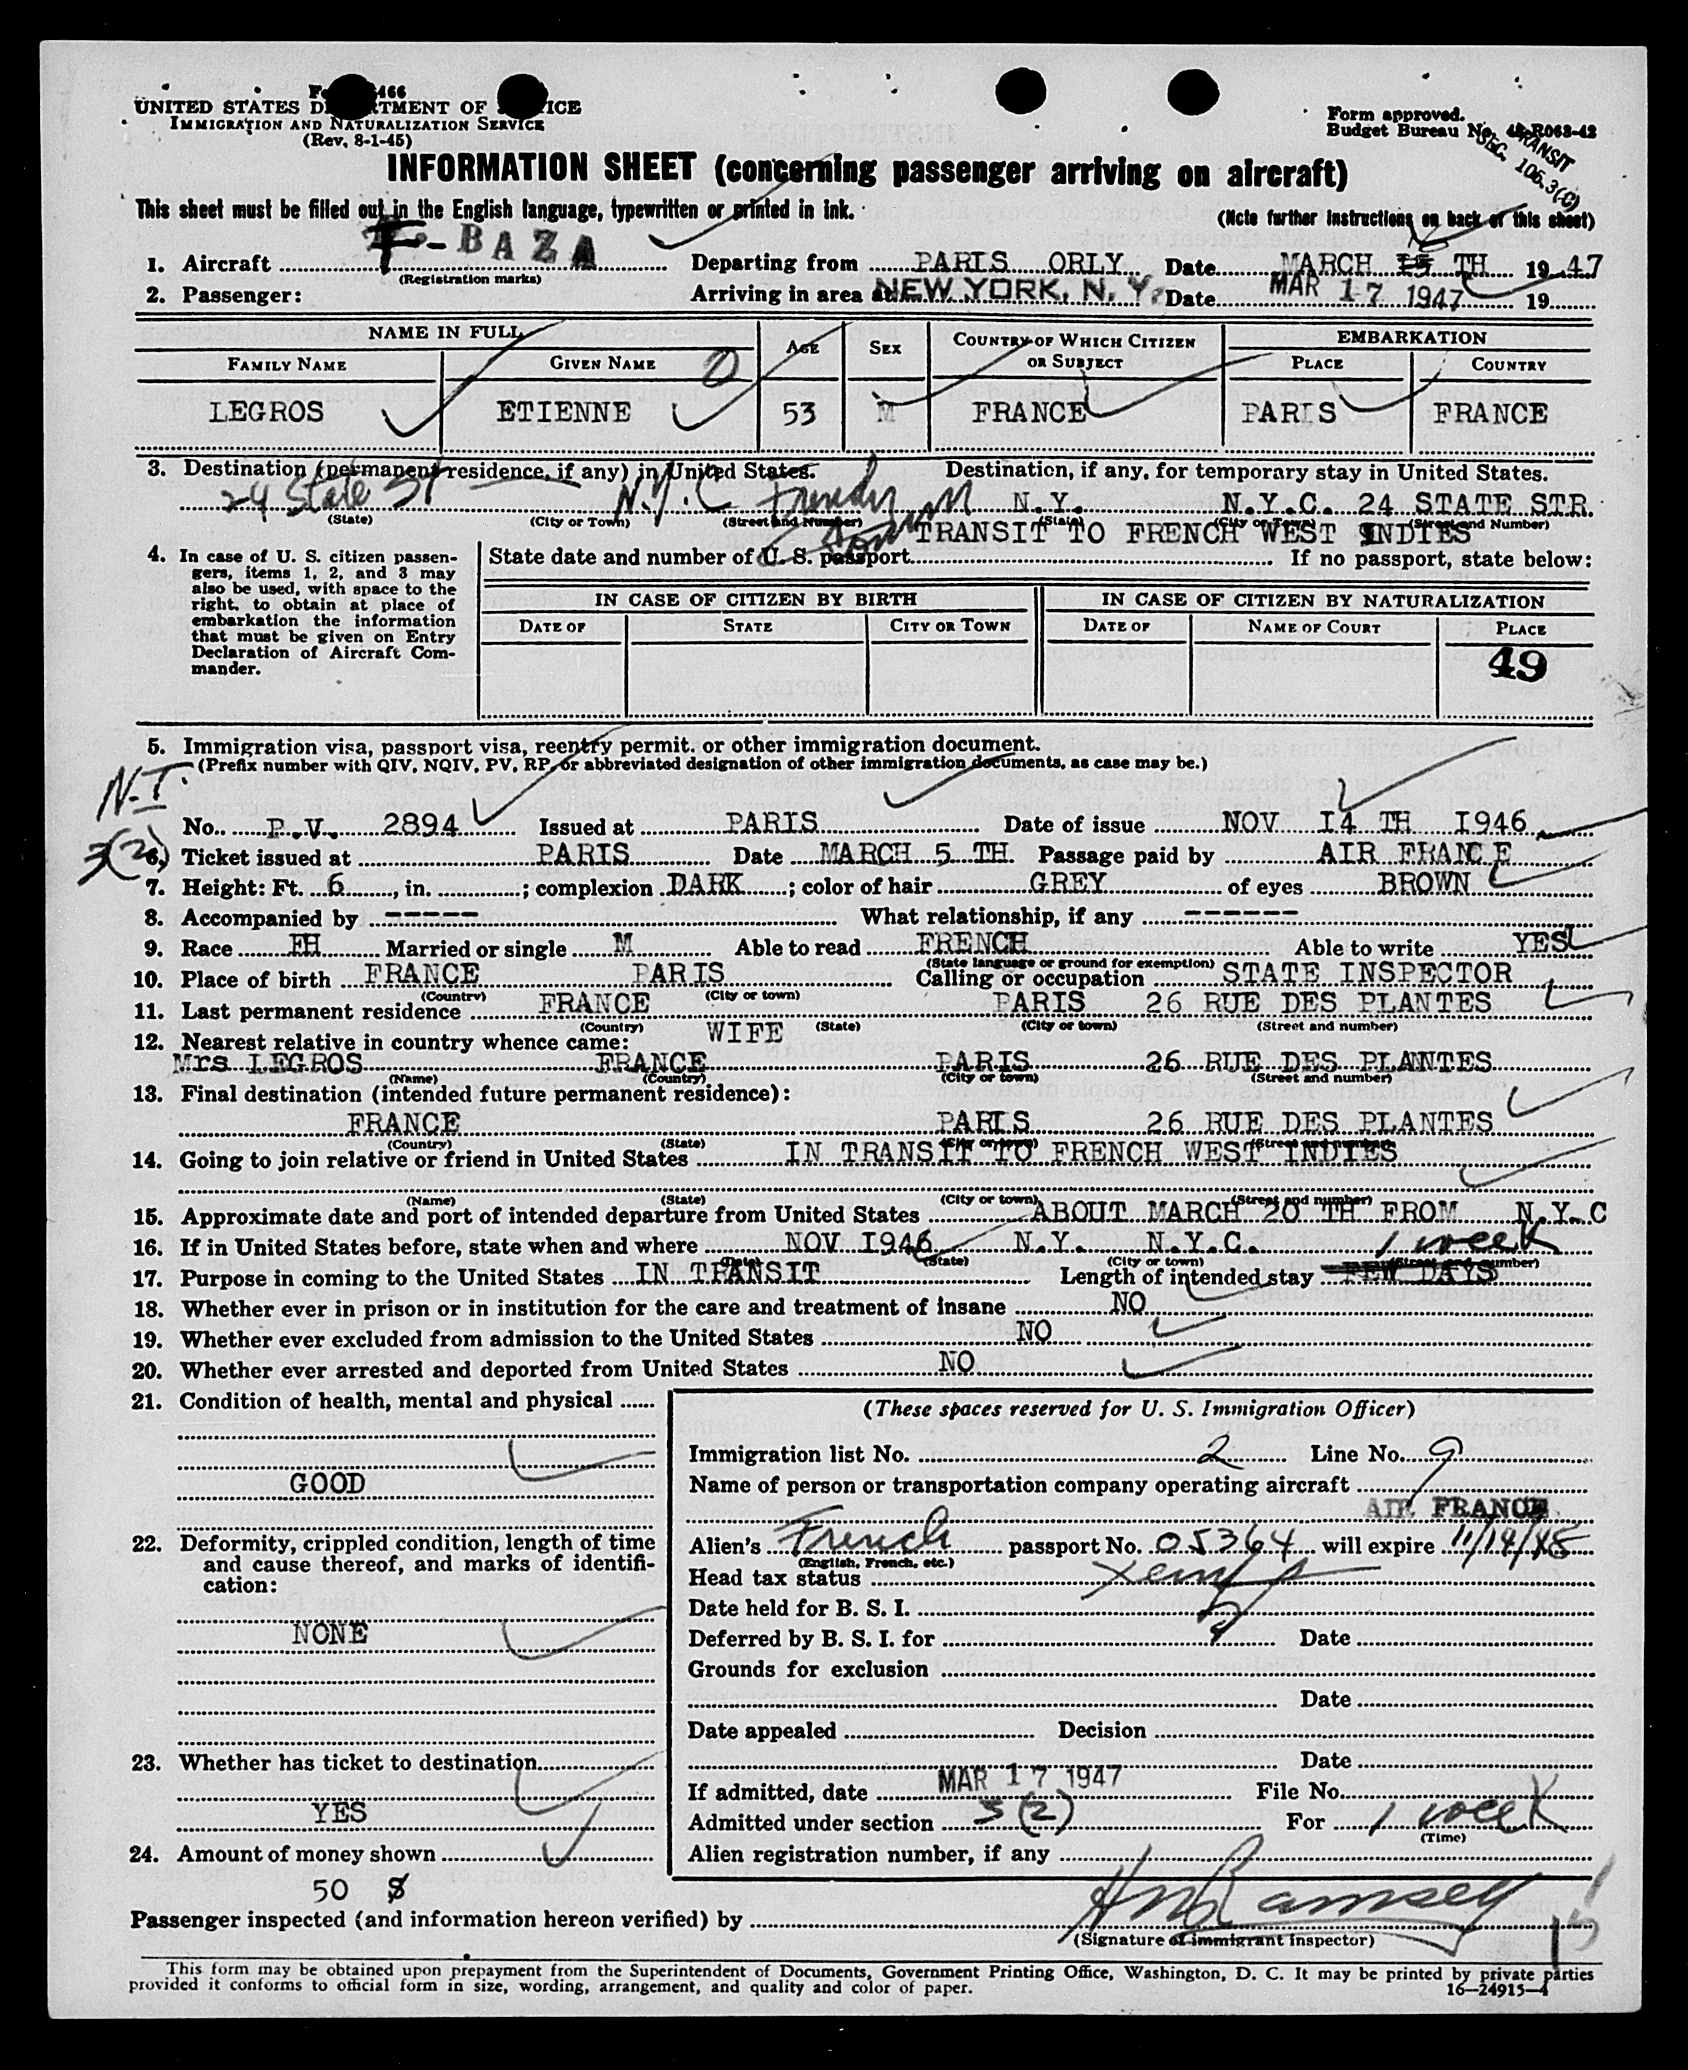 466
UNITED STATES D TMENT OF ICE
IMMIGRATION AND NATURALIZATION SERVICE
(Rev. 8-1-45)
Form approved.
Budget Bureau No. 43-R063-42
TRANSIT
SEC. 105.3(C)
INFORMATION SHEET (concerning passenger arriving on aircraft)
This sheet must be filled out in the English language, typewritten or printed in ink.
(Note further instructions on back of this sheet)
1. Aircraft F-BAZA Departing from PARIS ORLY Date MARCH TH 1947
(Registration marks)
2. Passenger: Arriving in area at NEW YORK, N. Y. Date MAR 17 1947 19
NAME IN FULL AGE SEX COUNTRY OF WHICH CITIZEN OR SUBJECT EMBARKATION
FAMILY NAME GIVEN NAME PLACE COUNTRY
LEGROS ETIENNE 53 M FRANCE PARIS FRANCE
3. Destination (permanent residence, if any) in United States. Destination, if any, for temporary stay in United States.
24 State St N.Y.C French N.Y. N.Y.C. 24 STATE STR
(State) (City or Town) (Street and Number) (State) (City or Town) (Street and Number)
TRANSIT TO FRENCH WEST INDIES
4. In case of U. S. citizen passengers, items 1, 2, and 3 may also be used, with space to the right, to obtain at place of embarkation the information that must be given on Entry Declaration of Aircraft Commander.
State date and number of U. S. passport If no passport, state below:
IN CASE OF CITIZEN BY BIRTH IN CASE OF CITIZEN BY NATURALIZATION
DATE OF STATE CITY OR TOWN DATE OF NAME OF COURT PLACE
49
5. Immigration visa, passport visa, reentry permit, or other immigration document.
(Prefix number with QIV, NQIV, PV, RP, or abbreviated designation of other immigration documents, as case may be.)
N.I.
3(2)
No. P.V. 2894 Issued at PARIS Date of issue NOV I4 TH I946
6. Ticket issued at PARIS Date MARCH 5 TH Passage paid by AIR FRANCE
7. Height: Ft. 6, in. ; complexion DARK; color of hair GREY of eyes BROWN
8. Accompanied by ----- What relationship, if any ------
9. Race FH Married or single M Able to read FRENCH Able to write YES
(State language or ground for exemption)
10. Place of birth FRANCE PARIS Calling or occupation STATE INSPECTOR
(Country) (City or town)
11. Last permanent residence FRANCE PARIS 26 RUE DES PLANTES
(Country) (State) (City or town) (Street and number)
12. Nearest relative in country whence came: WIFE
Mrs LEGROS FRANCE PARIS 26 RUE DES PLANTES
(Name) (Country) (City or town) (Street and number)
13. Final destination (intended future permanent residence):
FRANCE PARIS 26 RUE DES PLANTES
(Country) (State) (City or town) (Street and number)
14. Going to join relative or friend in United States IN TRANSIT TO FRENCH WEST INDIES
(Name) (State) (City or town) (Street and number)
15. Approximate date and port of intended departure from United States ABOUT MARCH 20 TH FROM N.Y.C
16. If in United States before, state when and where NOV I946 N.Y. N.Y.C. 1 week
(Date) (State) (City or town) (Street and number)
17. Purpose in coming to the United States IN TRANSIT Length of intended stay FEW DAYS
18. Whether ever in prison or in institution for the care and treatment of insane NO
19. Whether ever excluded from admission to the United States NO
20. Whether ever arrested and deported from United States NO
21. Condition of health, mental and physical
GOOD
22. Deformity, crippled condition, length of time and cause thereof, and marks of identification:
NONE
23. Whether has ticket to destination
YES
24. Amount of money shown
50 $
(These spaces reserved for U. S. Immigration Officer)
Immigration list No. 2 Line No. 9
Name of person or transportation company operating aircraft
AIR FRANCE
Alien's French passport No. 05364 will expire 11/14/48
(English, French, etc.)
Head tax status
Date held for B. S. I.
Deferred by B. S. I. for Date
Grounds for exclusion
Date
Date appealed Decision
Date
If admitted, date MAR 17 1947 File No.
Admitted under section 3(2) For 1 week
(Time)
Alien registration number, if any
Passenger inspected (and information hereon verified) by H Ramsey
(Signature of immigrant inspector)
This form may be obtained upon prepayment from the Superintendent of Documents, Government Printing Office, Washington, D. C. It may be printed by private parties
provided it conforms to official form in size, wording, arrangement, and quality and color of paper.
16—24915-4